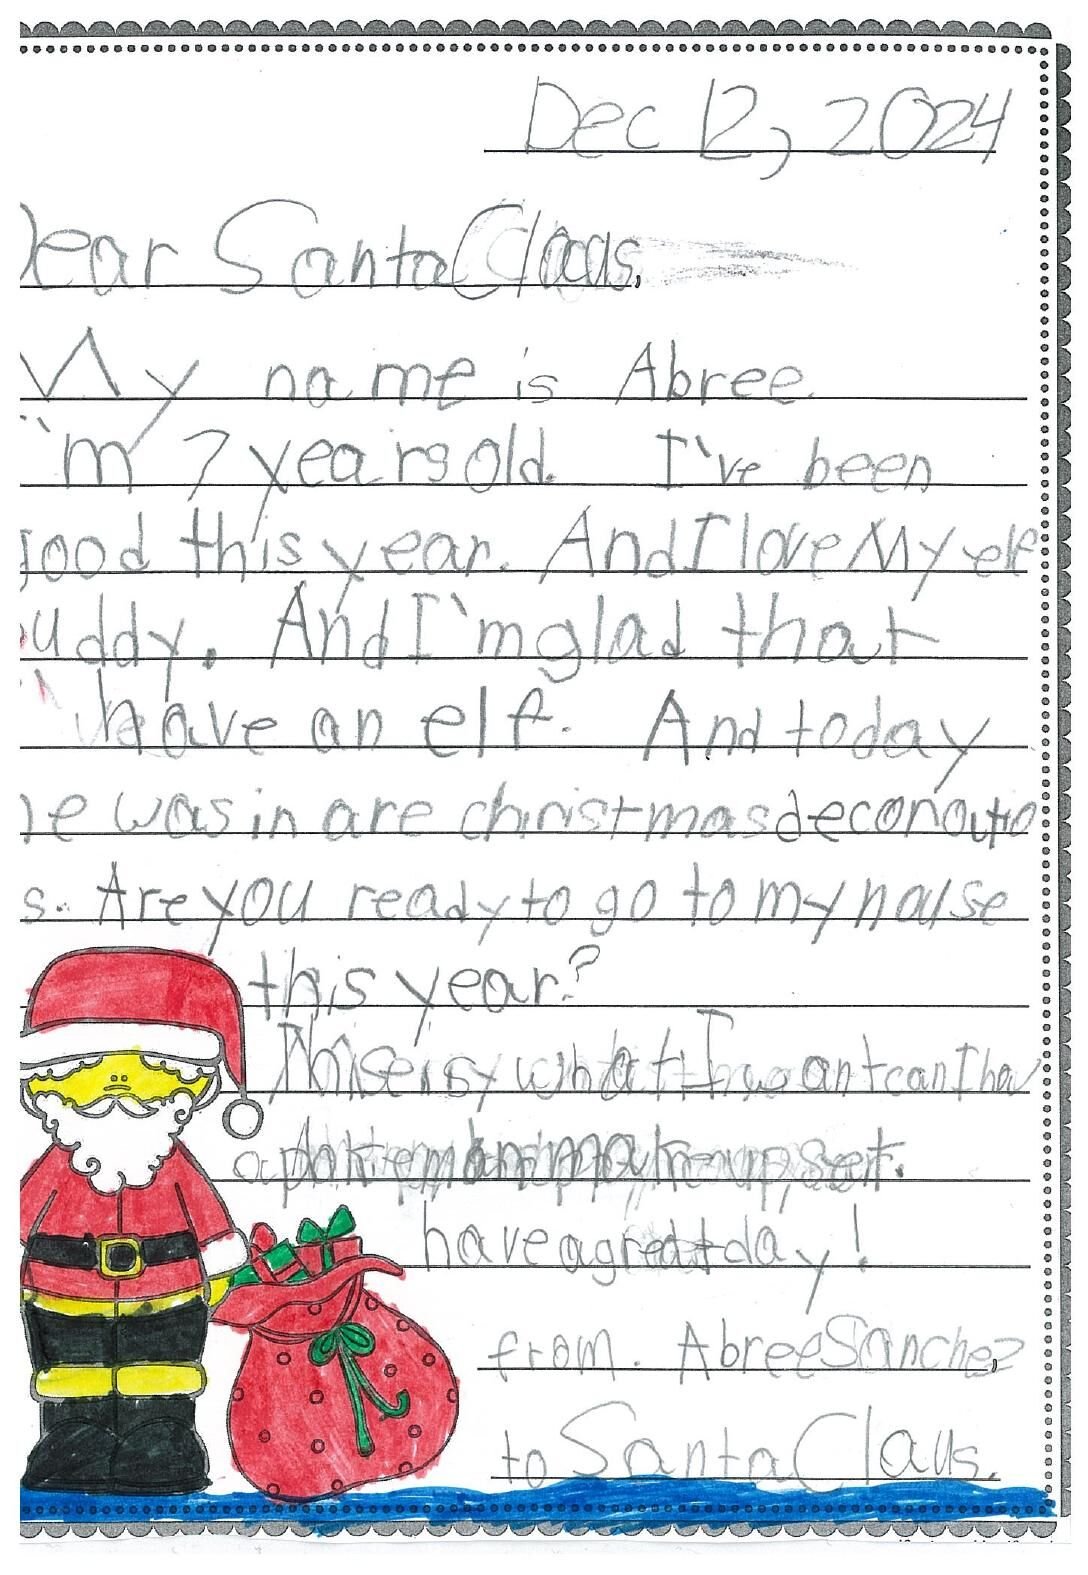 Dec 12, 2024
Dear Santa Claus,
My name is Abree.
I'm 7 years old. I've been
good this year. And I love My elf
buddy. And I'm glad that
have an elf. And today
he was in are christmas
s. Are you ready to go to my
this year?
what I want can I hav
a set.
have a great day!
from. Abree Sanchez
to Santa Claus.